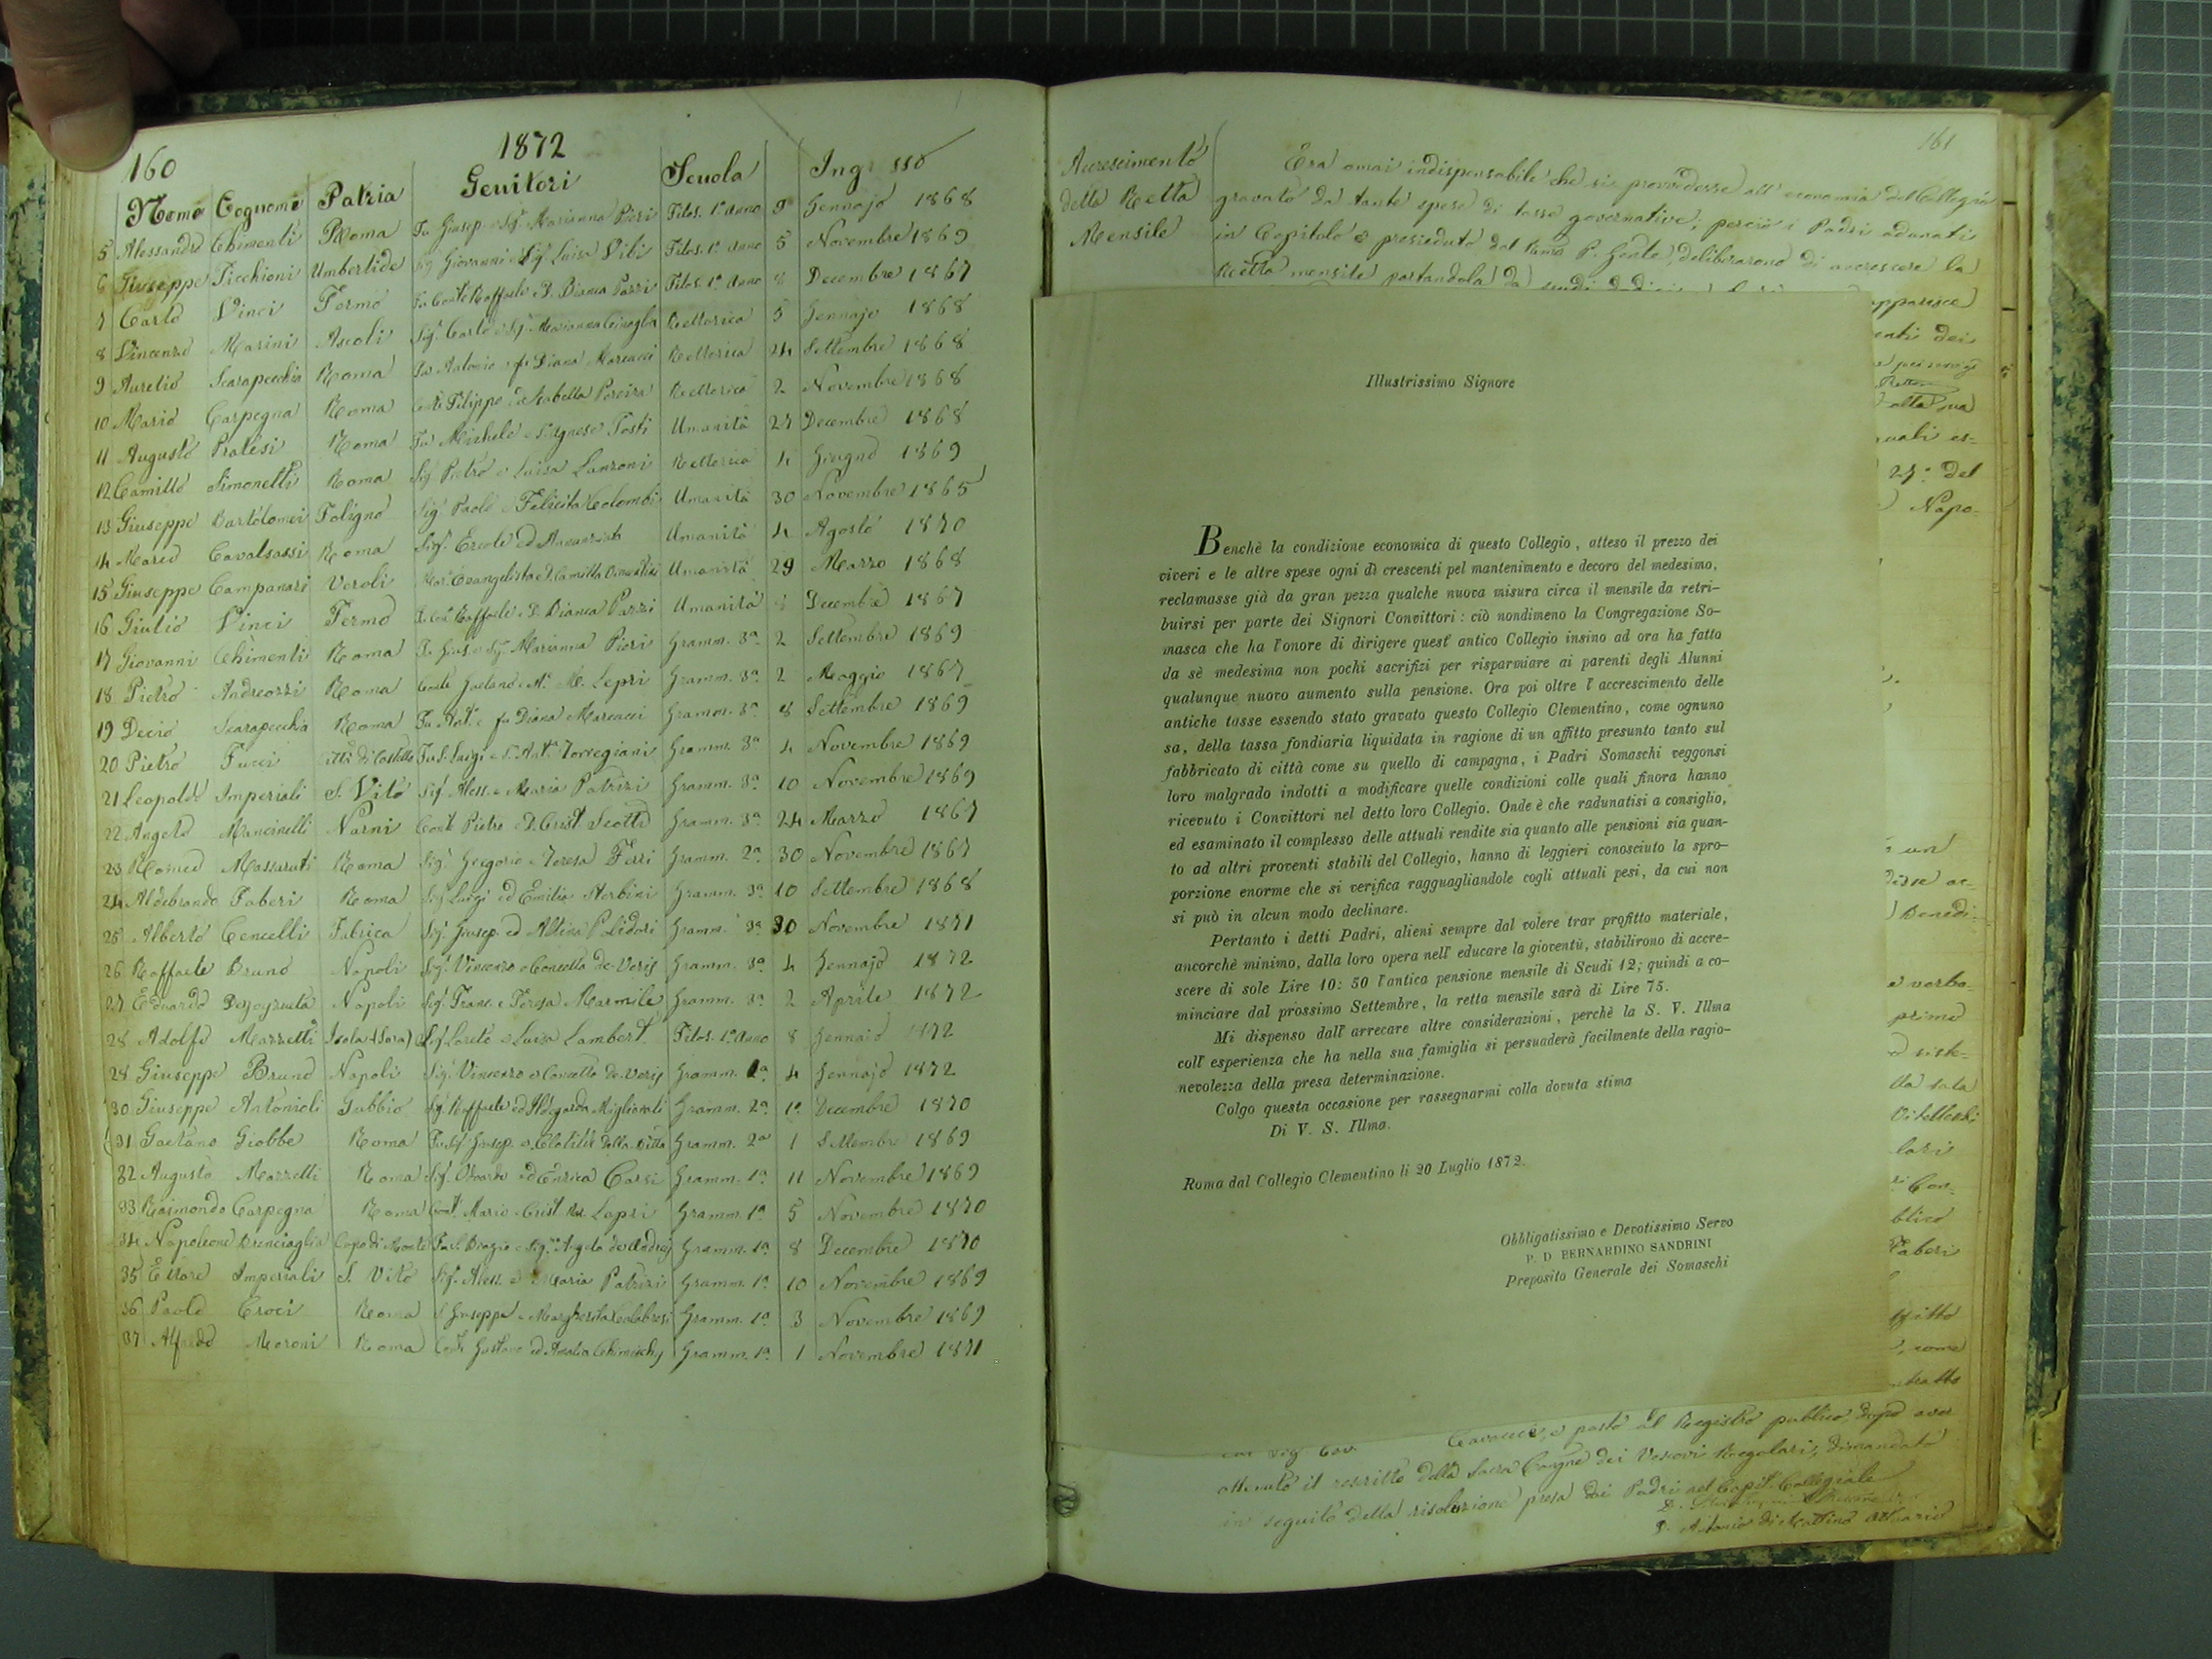 160
1872
Nome Cognome Patria Genitori Scuola Ingresso
5 Alessandro Chimenti Roma Fu Giusep. e Sigr. Marianna Pieri Filos. 1° anno 9 Gennajo 1868
6 Giuseppe Ticchioni Umbertide Sig. Giovanni e Sigr. Luisa Vibi Filos. 1° anno 5 Novembre 1869
7 Carlo Vinci Fermo Fu Conte Raffaele e D. Bianca Pazzi Filos. 1° anno 8 Decembre 1867
8 Vincenzo Marini Ascoli Sigr. Carlo e Sigr. Marianna Rettorica 5 Gennajo 1868
9 Aurelio Scarapecchia Roma Fu Antonio e fu Diana Marcucci Rettorica 24 Settembre 1868
10 Mario Carpegna Roma Conte Filippo ed Isabella Pereira Rettorica 2 Novembre 1868
11 Augusto Pratesi Roma Fu Michele e S. Agnese Tosti Umanità 27 Decembre 1868
12 Camillo Simonetti Roma Sigr. Pietro e Luisa Lanzoni Rettorica 4 Giugno 1869
13 Giuseppe Bartolomei Foligno Sigr. Paolo e Felicita Colombi Umanità 30 Novembre 1865
14 Marco Cavalsassi Roma Sigr. Ercole ed Annunziata Umanità 4 Agosto 1870
15 Giuseppe Campanari Veroli Mar. Evangelista e D. Camilla Umanità 29 Marzo 1868
16 Giulio Vinci Fermo Fu Con. Raffaele e D. Bianca Pazzi Umanità 8 Decembre 1867
17 Giovanni Chimenti Roma Fu Gius. e Sigr. Marianna Pieri Gramm. 3ª 2 Settembre 1869
18 Pietro Andreozzi Roma Conte Gaetano e Mª M. Lepri Gramm. 3ª 2 Maggio 1867
19 Decio Scarapecchia Roma Fu Ant. e fu Diana Marcucci Gramm. 3ª 8 Settembre 1869
20 Pietro Fucci Città di Castello Fu S. Luigi e S. Antª Torregiani Gramm. 3ª 4 Novembre 1869
21 Leopoldo Imperiali S. Vito Sigr. Aless. e Maria Patrizi Gramm. 3ª 10 Novembre 1869
22 Angelo Mancinelli Narni Conte Pietro e D. Crist. Scotti Gramm. 3ª 24 Marzo 1867
23 Romeo Massaruti Roma Sigr. Gregorio e Teresa Ferri Gramm. 2ª 30 Novembre 1867
24 Aldebrando Faberi Roma Sigr. Luigi ed Emilia Sterbini Gramm. 3ª 10 Settembre 1868
25 Alberto Cencelli Fabrica Sigr. Giusep. ed Altina Polidori Gramm. 3ª 30 Novembre 1871
26 Raffaele Bruno Napoli Sigr. Vincenzo e Concetta de Veris Gramm. 3ª 4 Gennajo 1872
27 Edoardo Napoli Sigr. Franc. e Teresa Marmile Gramm. 3ª 2 Aprile 1872
28 Adolfo Mazzetti Isola (Sora) Sigr. Loreto e Luisa Lambert Filos. 1° anno 8 Gennajo 1872
28 Giuseppe Bruno Napoli Sigr. Vincenzo e Concetta de Veris Gramm. 1ª 4 Gennajo 1872
30 Giuseppe Antonioli Gubbio Sigr. Raffaele ed Ildegarda Migliorati Gramm. 2ª 1° Decembre 1870
31 Gaetano Giobbe Roma Fu Sigr. Giusep. e Clotilde Della Bitta Gramm. 2ª 1 Settembre 1869
32 Augusto Mazzetti Roma Sigr. Odoardo ed Enrica Corsi Gramm. 1ª 11 Novembre 1869
33 Raimondo Carpegna Roma Cont. Mario e Crist. Lepri Gramm. 1ª 5 Novembre 1870
34 Napoleone Brenciaglia Capo di Monte Fu S. Biagio e Sigra Angela de Andreis Gramm. 1ª 8 Decembre 1870
35 Ettore Imperiali S. Vito Sigr. Aless. e Maria Patrizi Gramm. 1ª 10 Novembre 1869
36 Paolo Croci Roma S. Giuseppe e Margherita Calabresi Gramm. 1ª 3 Novembre 1869
37 Alfredo Moroni Roma Conte Gustavo ed Amalia Gramm. 1ª 1 Novembre 1871
161
Accrescimento
della Retta
Mensile
Era omai indispensabile che si provvedesse all'economia del Collegio
gravato da tante spese di tasse governative; perciò i Padri adunati
in Capitolo e presieduto dal Rmo P. Gnle, deliberarono di accrescere la
Retta mensile portandola da scudi dodici
apparisce
dei
alla sua
uali es-
27° del
Napo-
Illustrissimo Signore
Benchè la condizione economica di questo Collegio, atteso il prezzo dei
viveri e le altre spese ogni dì crescenti pel mantenimento e decoro del medesimo,
reclamasse già da gran pezza qualche nuova misura circa il mensile da retri-
buirsi per parte dei Signori Convittori: ciò nondimeno la Congregazione So-
masca che ha l'onore di dirigere quest' antico Collegio insino ad ora ha fatto
da sè medesima non pochi sacrifizi per risparmiare ai parenti degli Alunni
qualunque nuovo aumento sulla pensione. Ora poi oltre l' accrescimento delle
antiche tasse essendo stato gravato questo Collegio Clementino, come ognuno
sa, della tassa fondiaria liquidata in ragione di un affitto presunto tanto sul
fabbricato di città come su quello di campagna, i Padri Somaschi veggonsi
loro malgrado indotti a modificare quelle condizioni colle quali finora hanno
ricevuto i Convittori nel detto loro Collegio. Onde è che radunatisi a consiglio,
ed esaminato il complesso delle attuali rendite sia quanto alle pensioni sia quan-
to ad altri proventi stabili del Collegio, hanno di leggieri conosciuto la spro-
porzione enorme che si verifica ragguagliandole cogli attuali pesi, da cui non
si può in alcun modo declinare.
Pertanto i detti Padri, alieni sempre dal volere trar profitto materiale,
ancorchè minimo, dalla loro opera nell' educare la gioventù, stabilirono di accre-
scere di sole Lire 10: 50 l'antica pensione mensile di Scudi 12; quindi a co-
minciare dal prossimo Settembre, la retta mensile sarà di Lire 75.
Mi dispenso dall' arrecare altre considerazioni, perchè la S. V. Illma
coll' esperienza che ha nella sua famiglia si persuaderà facilmente della ragio-
nevolezza della presa determinazione.
Colgo questa occasione per rassegnarmi colla dovuta stima
Di V. S. Illma.
Roma dal Collegio Clementino li 20 Luglio 1872.
Obbligatissimo e Devotissimo Servo
P. D. BERNARDINO SANDRINI
Preposito Generale dei Somaschi
un
Benedi-
verba-
primo
siste-
lla sala
Vitelleschi
lari
Con-
blico
Faberi
fitto
come
tratto
Sig. Cav. Cavacece, e posto al Registro publico, dopo aver
ottenuto il rescritto della Sacra Congne dei Vescovi Regolari, dimandato
in seguito della risoluzione presa dai Padri nel Capit. Collegiale
D. Antonio di Mattino Attuario